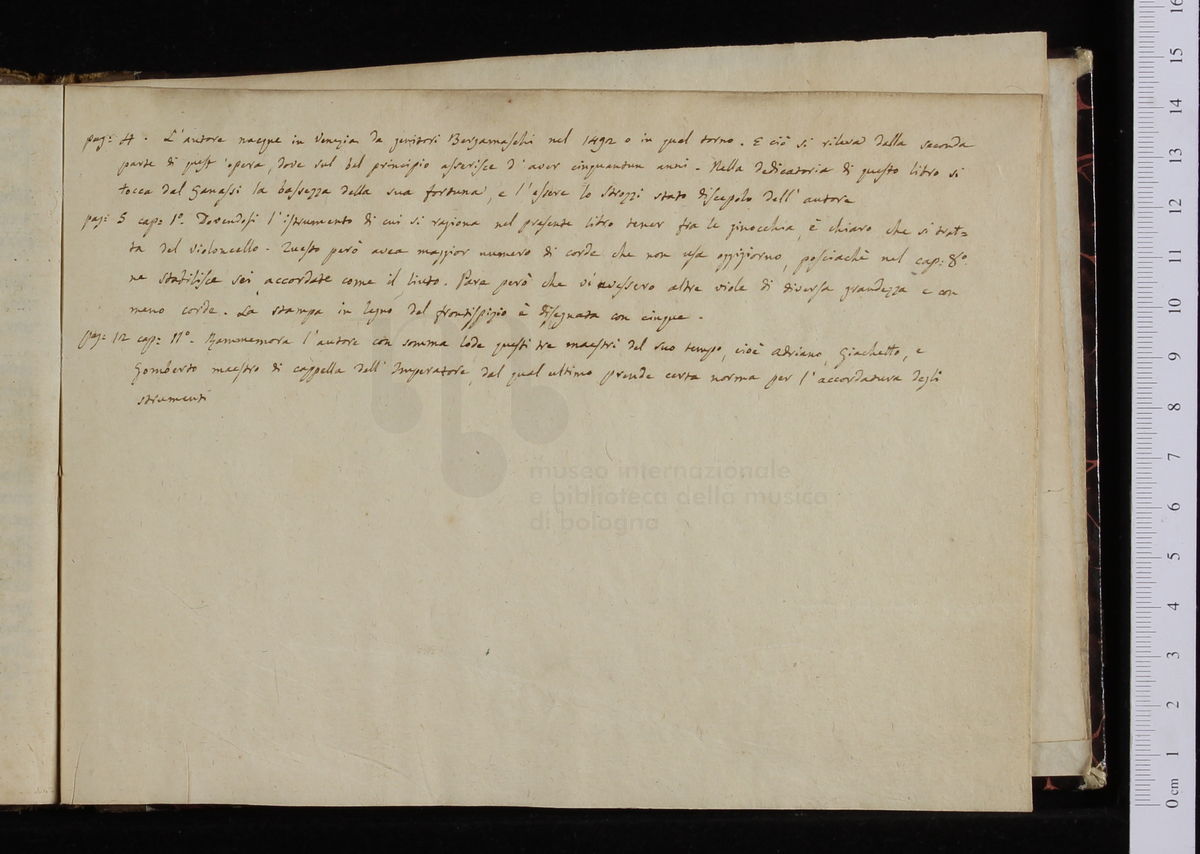 pag: 4. L'autore nacque in Venezia da genitori Bergamaschi nel 1492 o in quel torno. E ciò si rileva dalla seconda
parte di quest'opera, dove sul bel principio asserisce d'aver cinquantun anni. Nella dedicatoria di questo libro si
tocca dal Ganassi la bassezza della sua fortuna, e l'essere lo Strozzi stato discepolo dell'autore
pag: 5 cap: 1º. Dovendosi l'istrumento di cui si ragiona nel presente libro tener fra le ginocchia, è chiaro che si trat=
ta del Violoncello. Questo però avea maggior numero di corde che non usa oggigiorno, posciachè nel cap: 8º
ne stabilisce sei accordate come il liuto. Pare però che vi avessero altre viole di diversa grandezza e con
meno corde. La stampa in legno del frontispizio è disegnata con cinque.
pag: 12 cap: 11º. Rammemora l'autore con somma lode questi tre maestri del suo tempo, cioè Adriano, Giachetto, e
Gomberto maestro di cappella dell'Imperatore, dal qual ultimo prende certa norma per l'accordatura degli
strumenti
museo internazionale
e biblioteca della musica
di bologna
0 cm 1 2 3 4 5 6 7 8 9 10 11 12 13 14 15 16